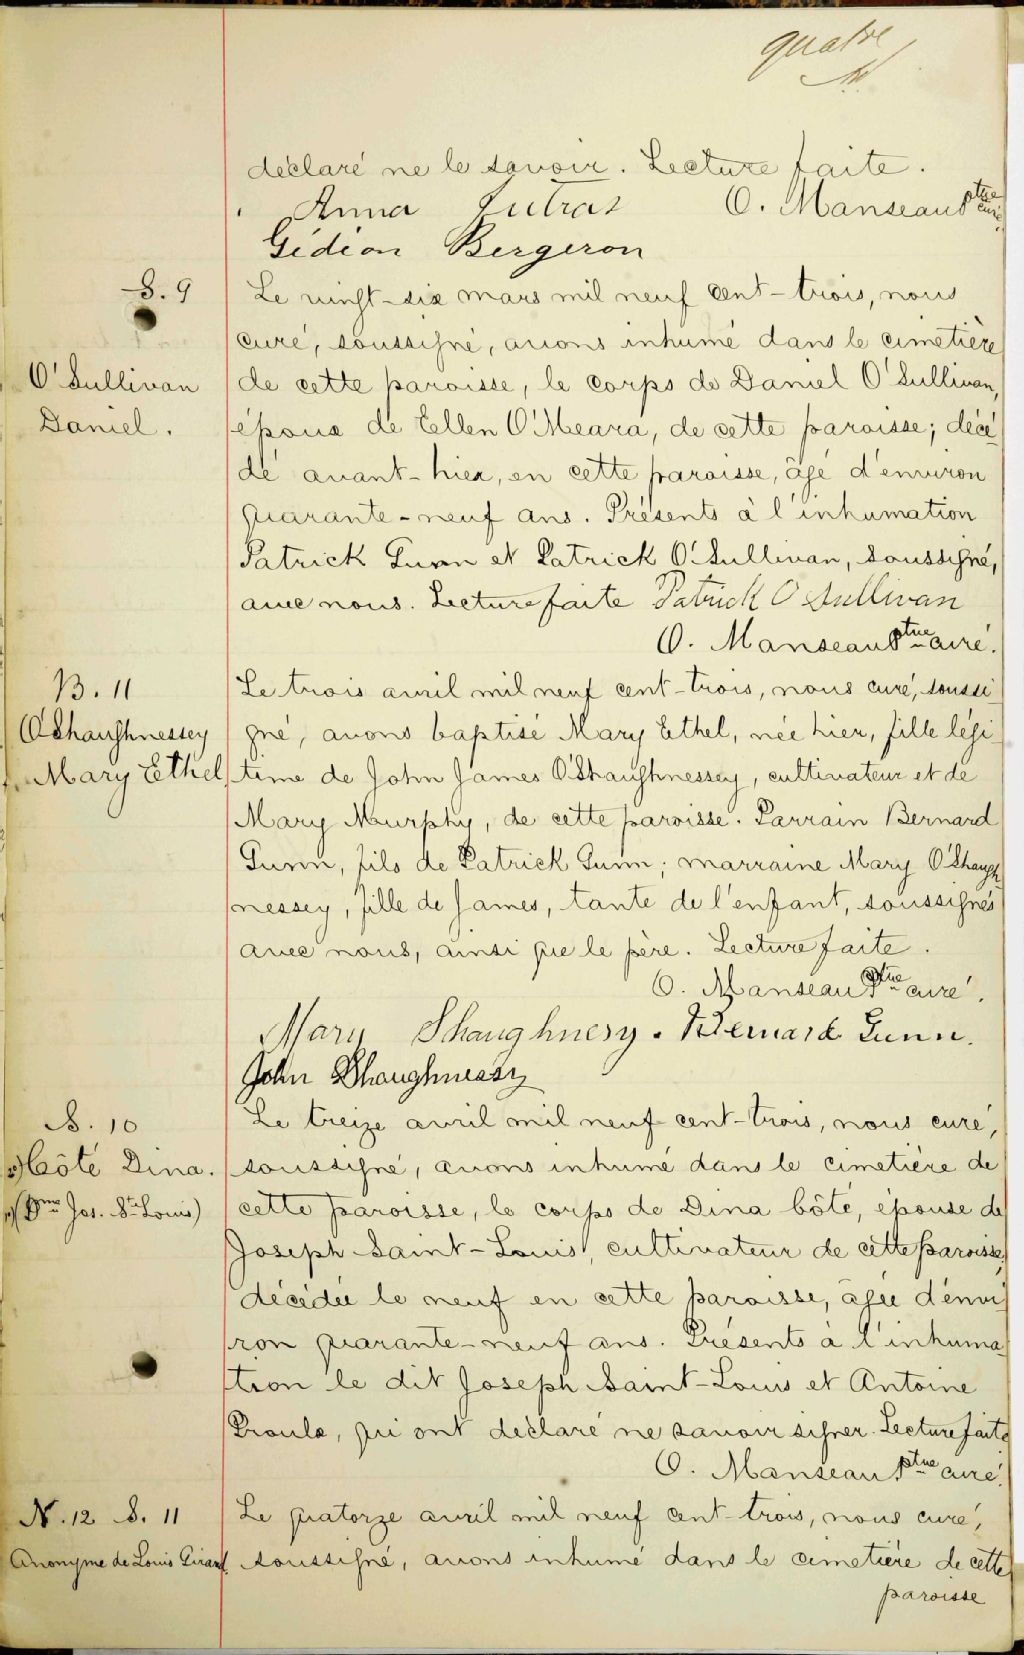 quatre
déclaré ne le savoir. Lecture faite.
Anna Lutras O. Manseau ptre curé
Gédéon Bergeron
S. 9
O'Sullivan
Daniel.
Le vingt-six mars mil neuf cent-trois, nous
curé, soussigné, avons inhumé dans le cimetière
de cette paroisse, le corps de Daniel O'Sullivan,
époux de Ellen O'Meara, de cette paroisse; décé
dé avant-hier, en cette paroisse, âgé d'environ
quarante-neuf ans. Présents à l'inhumation
Patrick Gunn et Patrick O'Sullivan, soussigné,
avec nous. Lecture faite Patrick O Sullivan
O. Manseau ptre curé.
B. 11
O'Shaughnessey
Mary Ethel
Le trois avril mil neuf cent-trois, nous curé, soussi
gné, avons baptisé Mary Ethel, née hier, fille légi
time de John James O'Shaughnessey, cultivateur et de
Mary Murphy, de cette paroisse. Parrain Bernard
Gunn, fils de Patrick Gunn; marraine Mary O'Shaugh
nessey, fille de James, tante de l'enfant, soussignés
avec nous, ainsi que le père. Lecture faite.
O. Manseau Ptre curé.
Mary Shaughnesy. Bernard Gunn.
John Shaughnessy
S. 10
Côté Dina.
(Dme Jos. St-Louis)
Le treize avril mil neuf cent-trois, nous curé,
soussigné, avons inhumé dans le cimetière de
cette paroisse, le corps de Dina Côté, épouse de
Joseph Saint-Louis, cultivateur de cette paroisse,
décédée le neuf en cette paroisse, âgée d'envi
ron quarante-neuf ans. Présents à l'inhuma
tion le dit Joseph Saint-Louis et Antoine
Proulx, qui ont déclaré ne savoir signer. Lecture faite
O. Manseau Ptre curé.
N. 12 S. 11
Anonyme de Louis Girard
Le quatorze avril mil neuf cent-trois, nous curé,
soussigné, avons inhumé dans le cimetière de cette
paroisse